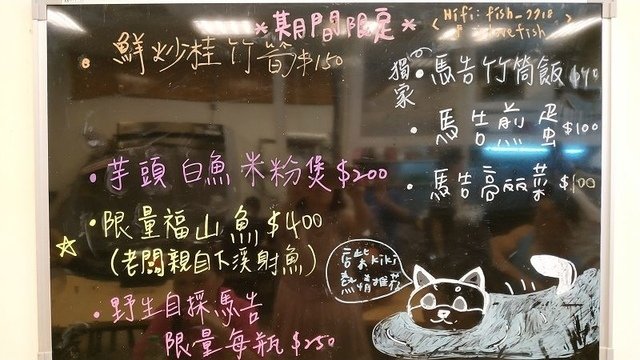 *期間限定*
Wifi: fish_
鮮炒桂竹筍$150
獨家
馬告竹筒飯
馬告煎蛋$100
芋頭白魚米粉煲$200
馬告高麗菜$100
限量福山魚$400
(老闆親自下溪射魚)
店柴kiki
熱情推荐
野生自採馬告
限量每瓶$250